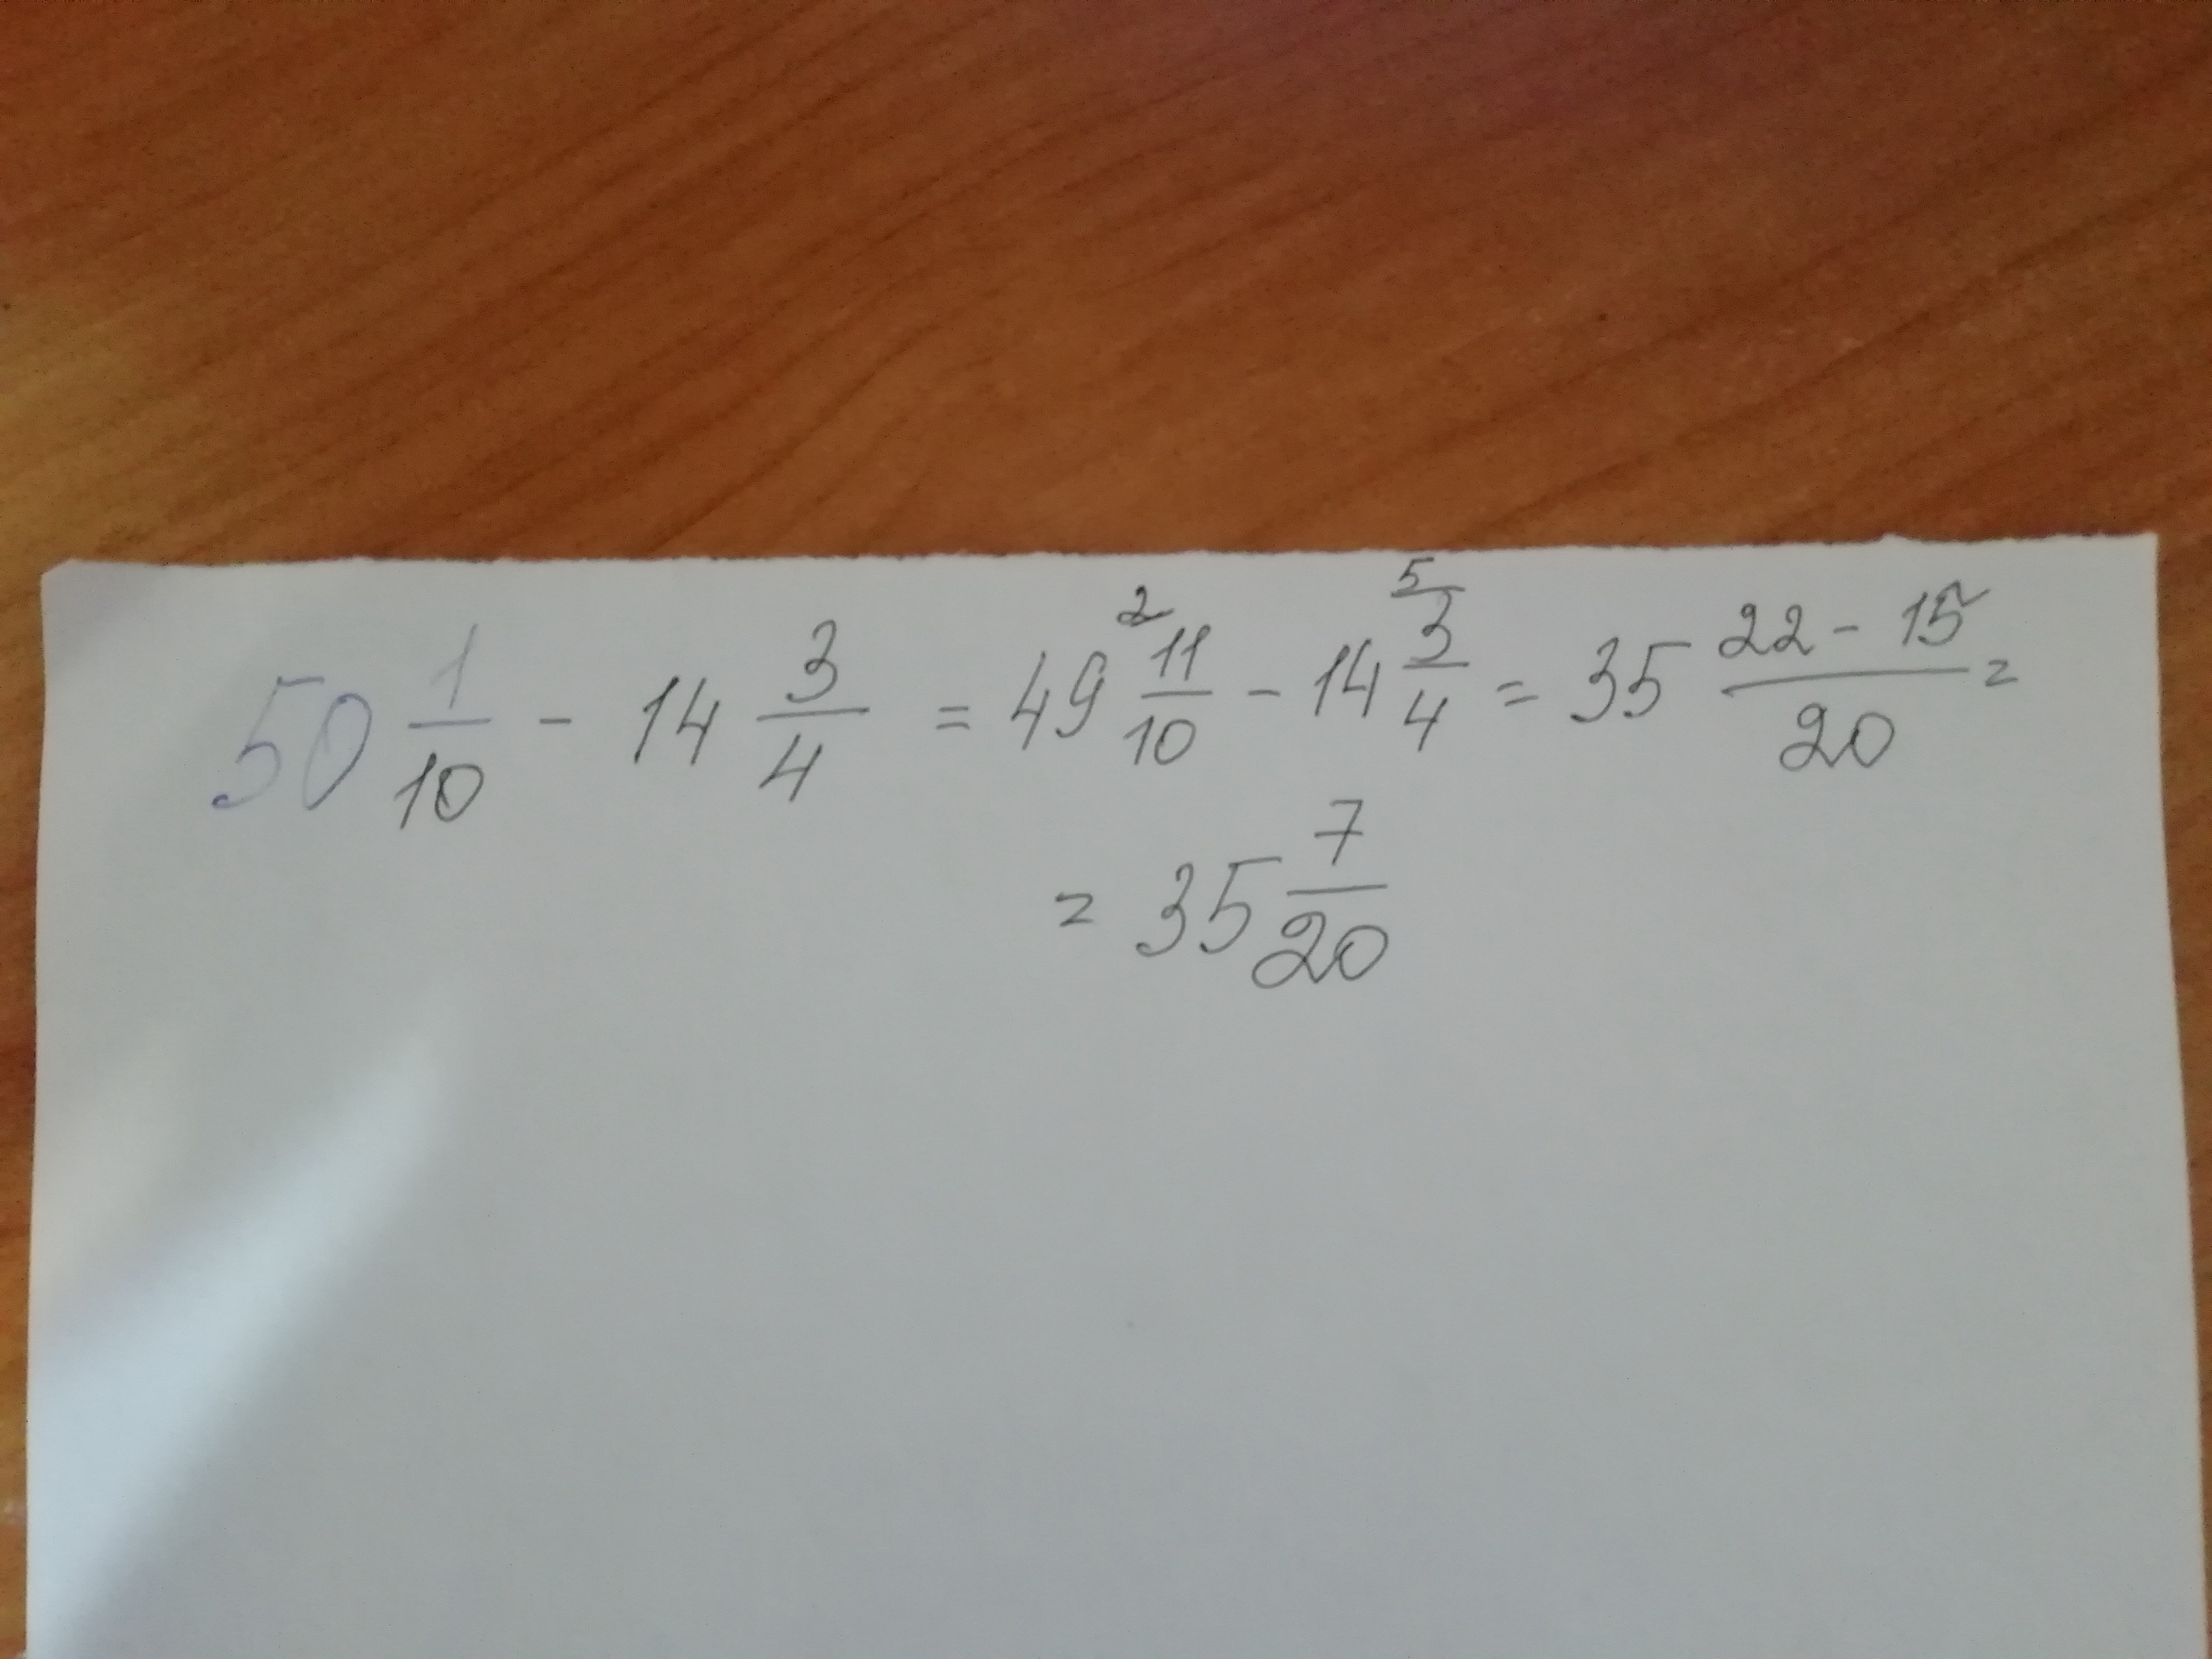 50 1/10 - 14 3/4 = 49 ²11/10 - 14 ⁵3/4 = 35 (22 - 15)/20 =
= 35 7/20